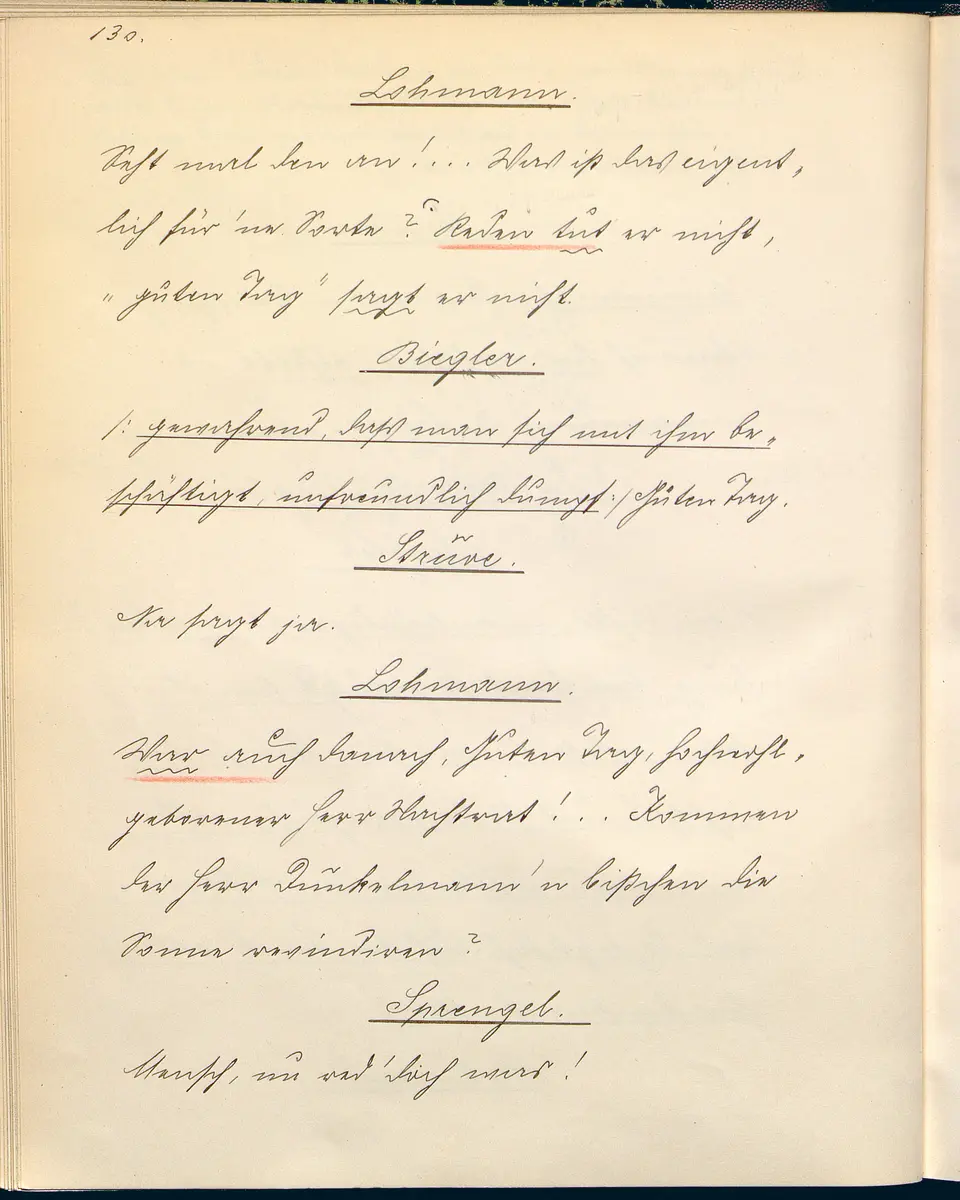 130.
Lohmann.
Seht mal den an!... Was ist das eigent„
lich für 'ne Sorte? Reden tut er nicht,
„guten Tag" sagt er nicht.
Biegler.
/: gewahrend, dass man sich mit ihm be„
schäftigt, unfreundlich dumpf :/ Guten Tag.
Strüve.
Na sagt ja.
Lohmann.
War auch danach, Guten Tag, hochwohl„
geborener Herr Nachtrat!... Kommen
der Herr Dunkelmann 'n bißchen die
Sonne revindiren?
Sprengel.
Mensch, nu red' doch was!